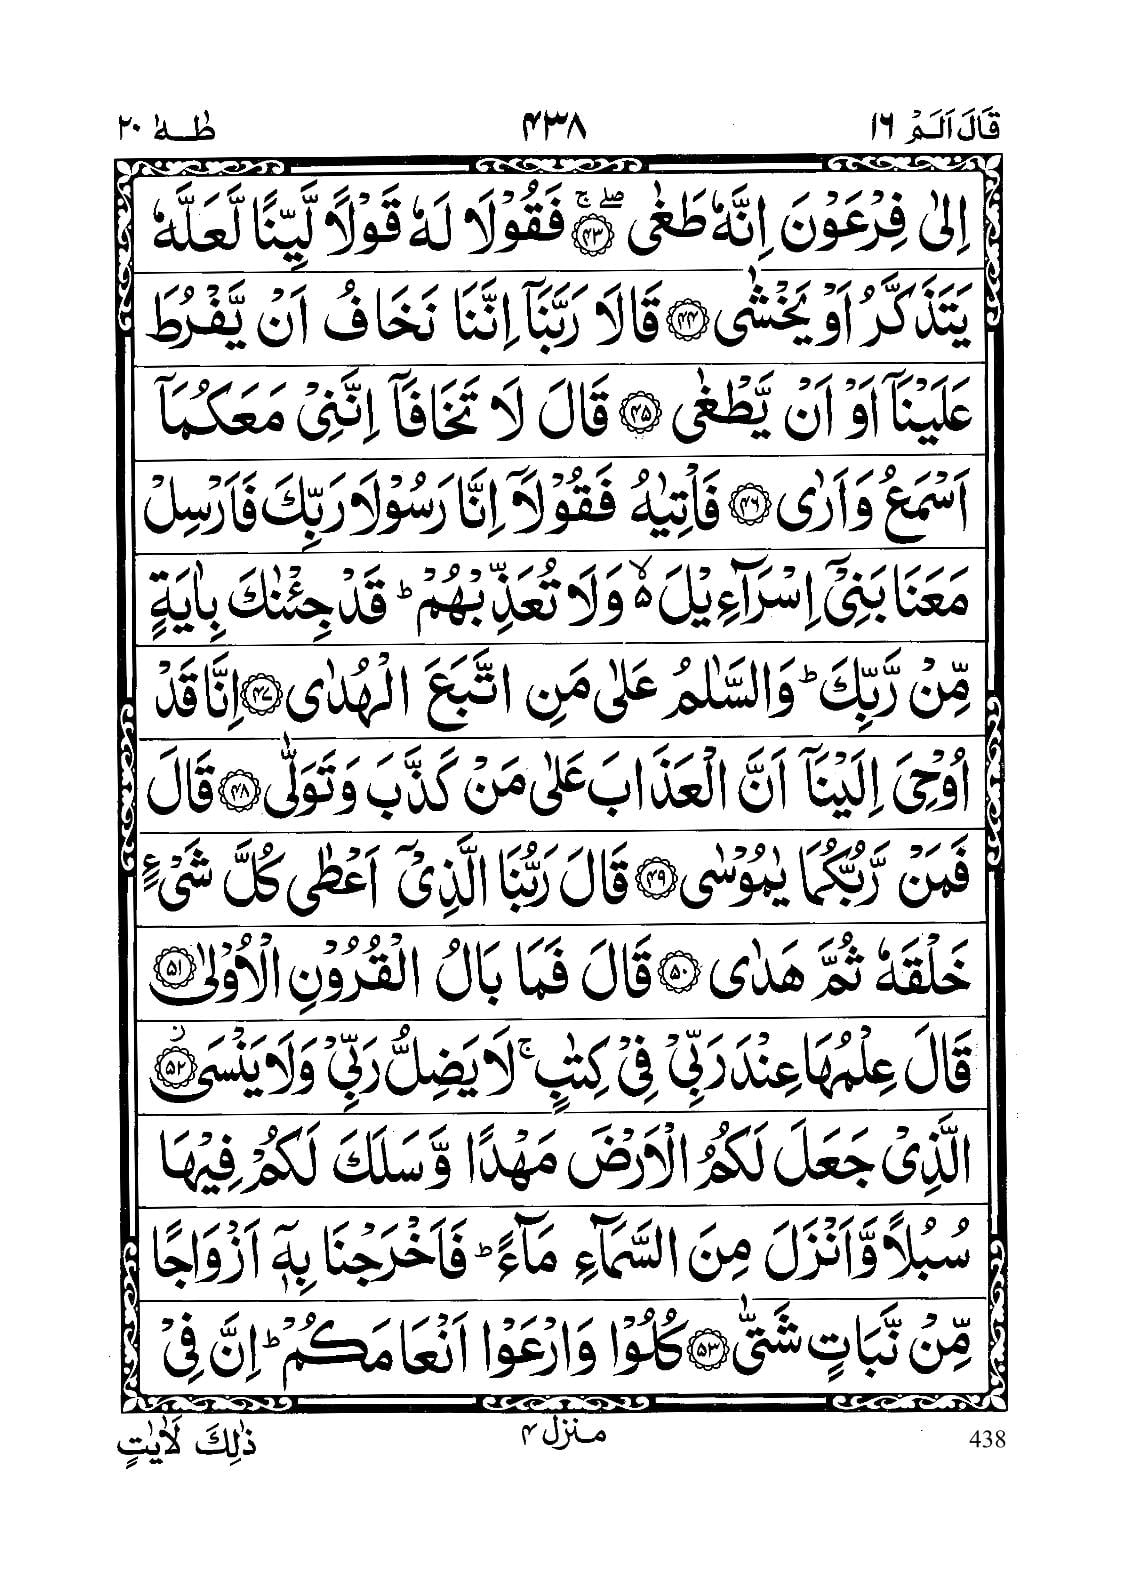 قَالَ اَلَمْ ١٦ ۴۳۸ طٰهٰ ٢٠
اِلٰى فِرْعَوْنَ اِنَّهٗ طَغٰى ۖۚ ﴿۴۳﴾ فَقُوْلَا لَهٗ قَوْلًا لَّيِّنًا لَّعَلَّهٗ
يَتَذَكَّرُ اَوْ يَخْشٰى ﴿۴۴﴾ قَالَا رَبَّنَاۤ اِنَّنَا نَخَافُ اَنْ يَّفْرُطَ
عَلَيْنَاۤ اَوْ اَنْ يَّطْغٰى ﴿۴۵﴾ قَالَ لَا تَخَافَاۤ اِنَّنِيْ مَعَكُمَاۤ
اَسْمَعُ وَاَرٰى ﴿۴۶﴾ فَاْتِيٰهُ فَقُوْلَاۤ اِنَّا رَسُوْلَا رَبِّكَ فَاَرْسِلْ
مَعَنَا بَنِيْۤ اِسْرَآءِيْلَ ۙ۬ وَلَا تُعَذِّبْهُمْ ؕ قَدْ جِئْنٰكَ بِاٰيَةٍ
مِّنْ رَّبِّكَ ؕ وَالسَّلٰمُ عَلٰى مَنِ اتَّبَعَ الْهُدٰى ﴿۴۷﴾ اِنَّا قَدْ
اُوْحِيَ اِلَيْنَاۤ اَنَّ الْعَذَابَ عَلٰى مَنْ كَذَّبَ وَتَوَلّٰى ﴿۴۸﴾ قَالَ
فَمَنْ رَّبُّكُمَا يٰمُوْسٰى ﴿۴۹﴾ قَالَ رَبُّنَا الَّذِيْۤ اَعْطٰى كُلَّ شَيْءٍ
خَلْقَهٗ ثُمَّ هَدٰى ﴿۵۰﴾ قَالَ فَمَا بَالُ الْقُرُوْنِ الْاُوْلٰى ﴿۵۱﴾
قَالَ عِلْمُهَا عِنْدَ رَبِّيْ فِيْ كِتٰبٍ ۚ لَا يَضِلُّ رَبِّيْ وَلَا يَنْسَى ﴿۵۲﴾ ز
الَّذِيْ جَعَلَ لَكُمُ الْاَرْضَ مَهْدًا وَّسَلَكَ لَكُمْ فِيْهَا
سُبُلًا وَّاَنْزَلَ مِنَ السَّمَآءِ مَآءً ؕ فَاَخْرَجْنَا بِهٖۤ اَزْوَاجًا
مِّنْ نَّبَاتٍ شَتّٰى ﴿۵۳﴾ كُلُوْا وَارْعَوْا اَنْعَامَكُمْ ؕ اِنَّ فِيْ
ذٰلِكَ لَاٰيٰتٍ
منزل ۴
438